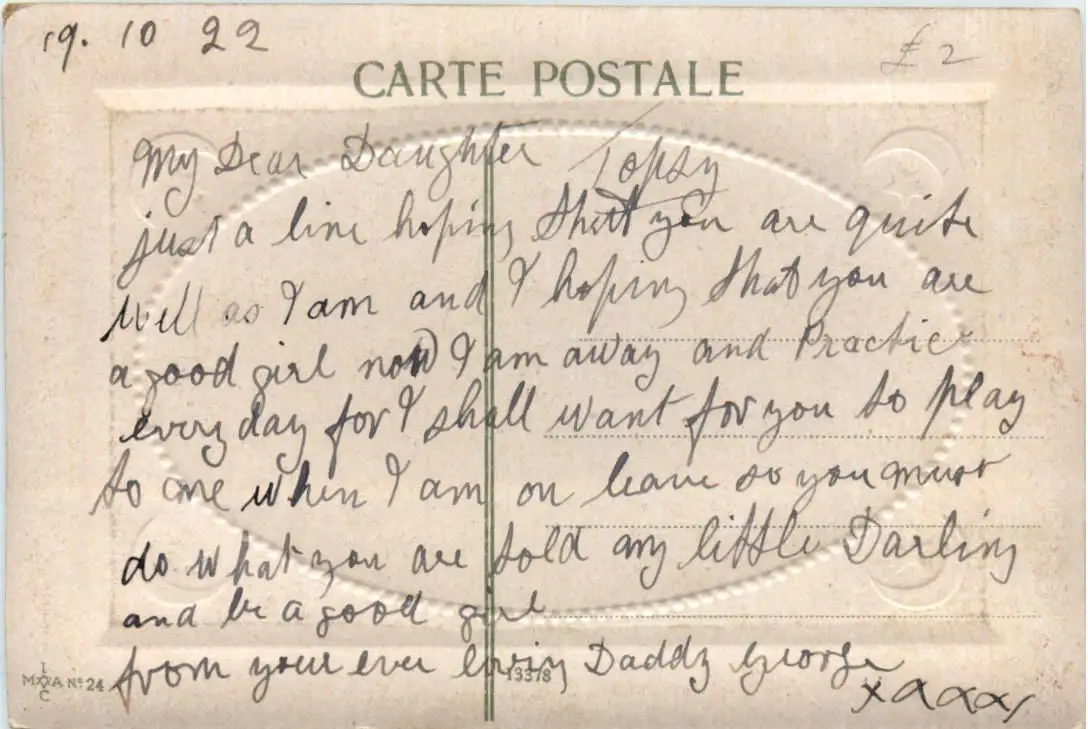 19. 10 22
£2
CARTE POSTALE
My Dear Daughter Topsy
just a line hoping that you are quite
well as I am and I hoping that you are
a good girl now I am away and Practice
every day for I shall want for you to play
to me when I am on leave so you must
do what you are told my little Darling
and be a good girl
from your ever loving Daddy George
xxxxx
M A No. 24
I
C
13378